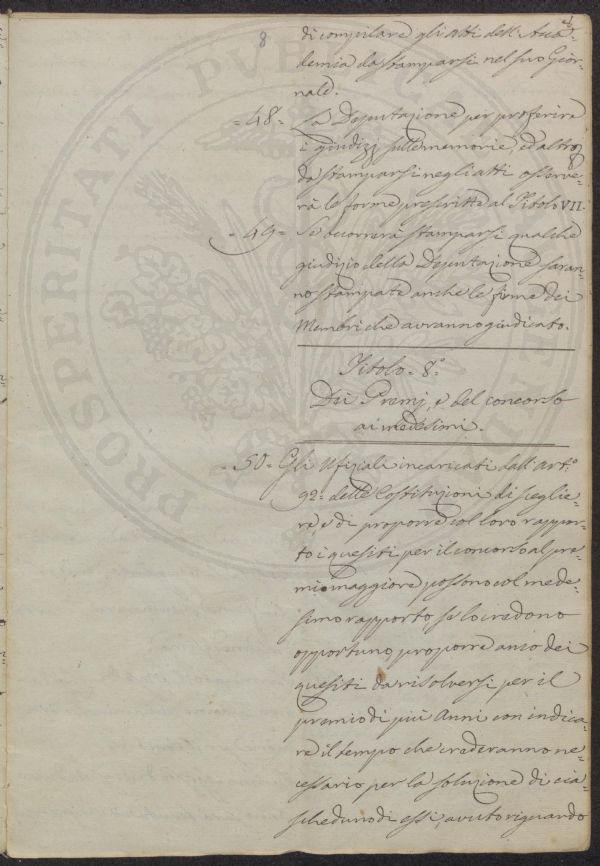 8
di compilare gli atti dell'Acca-
demia da stamparsi nel suo Gior-
nale.
= 48 = La Deputazione per proferire
i giudizj sulle memorie, ed altro
da stamparsi negli atti osserve-
rà le forme prescritte al Titolo VII.
= 49 = Se occorrerà stamparsi qualche
giudizio della Deputazione saran-
no stampate anche le firme dei
Membri che avranno giudicato.
Titolo = 8°.
Dei Premj, e del concorso
ai medesimi.
= 50 = Gli Ufiziali incaricati dall'art.°
92 = delle Costituzioni di sceglie-
re, e di proporre col loro rappor-
to i quesiti per il concorso al pre-
mio maggiore, possono col mede-
simo rapporto, se lo credono
opportuno, proporre anco dei
quesiti da risolversi per il
premio di più Anni con indica-
re il tempo che crederanno ne-
cessario per la soluzione di cia-
scheduno di essi, avuto riguardo
PROSPERITATI PVBLICAE